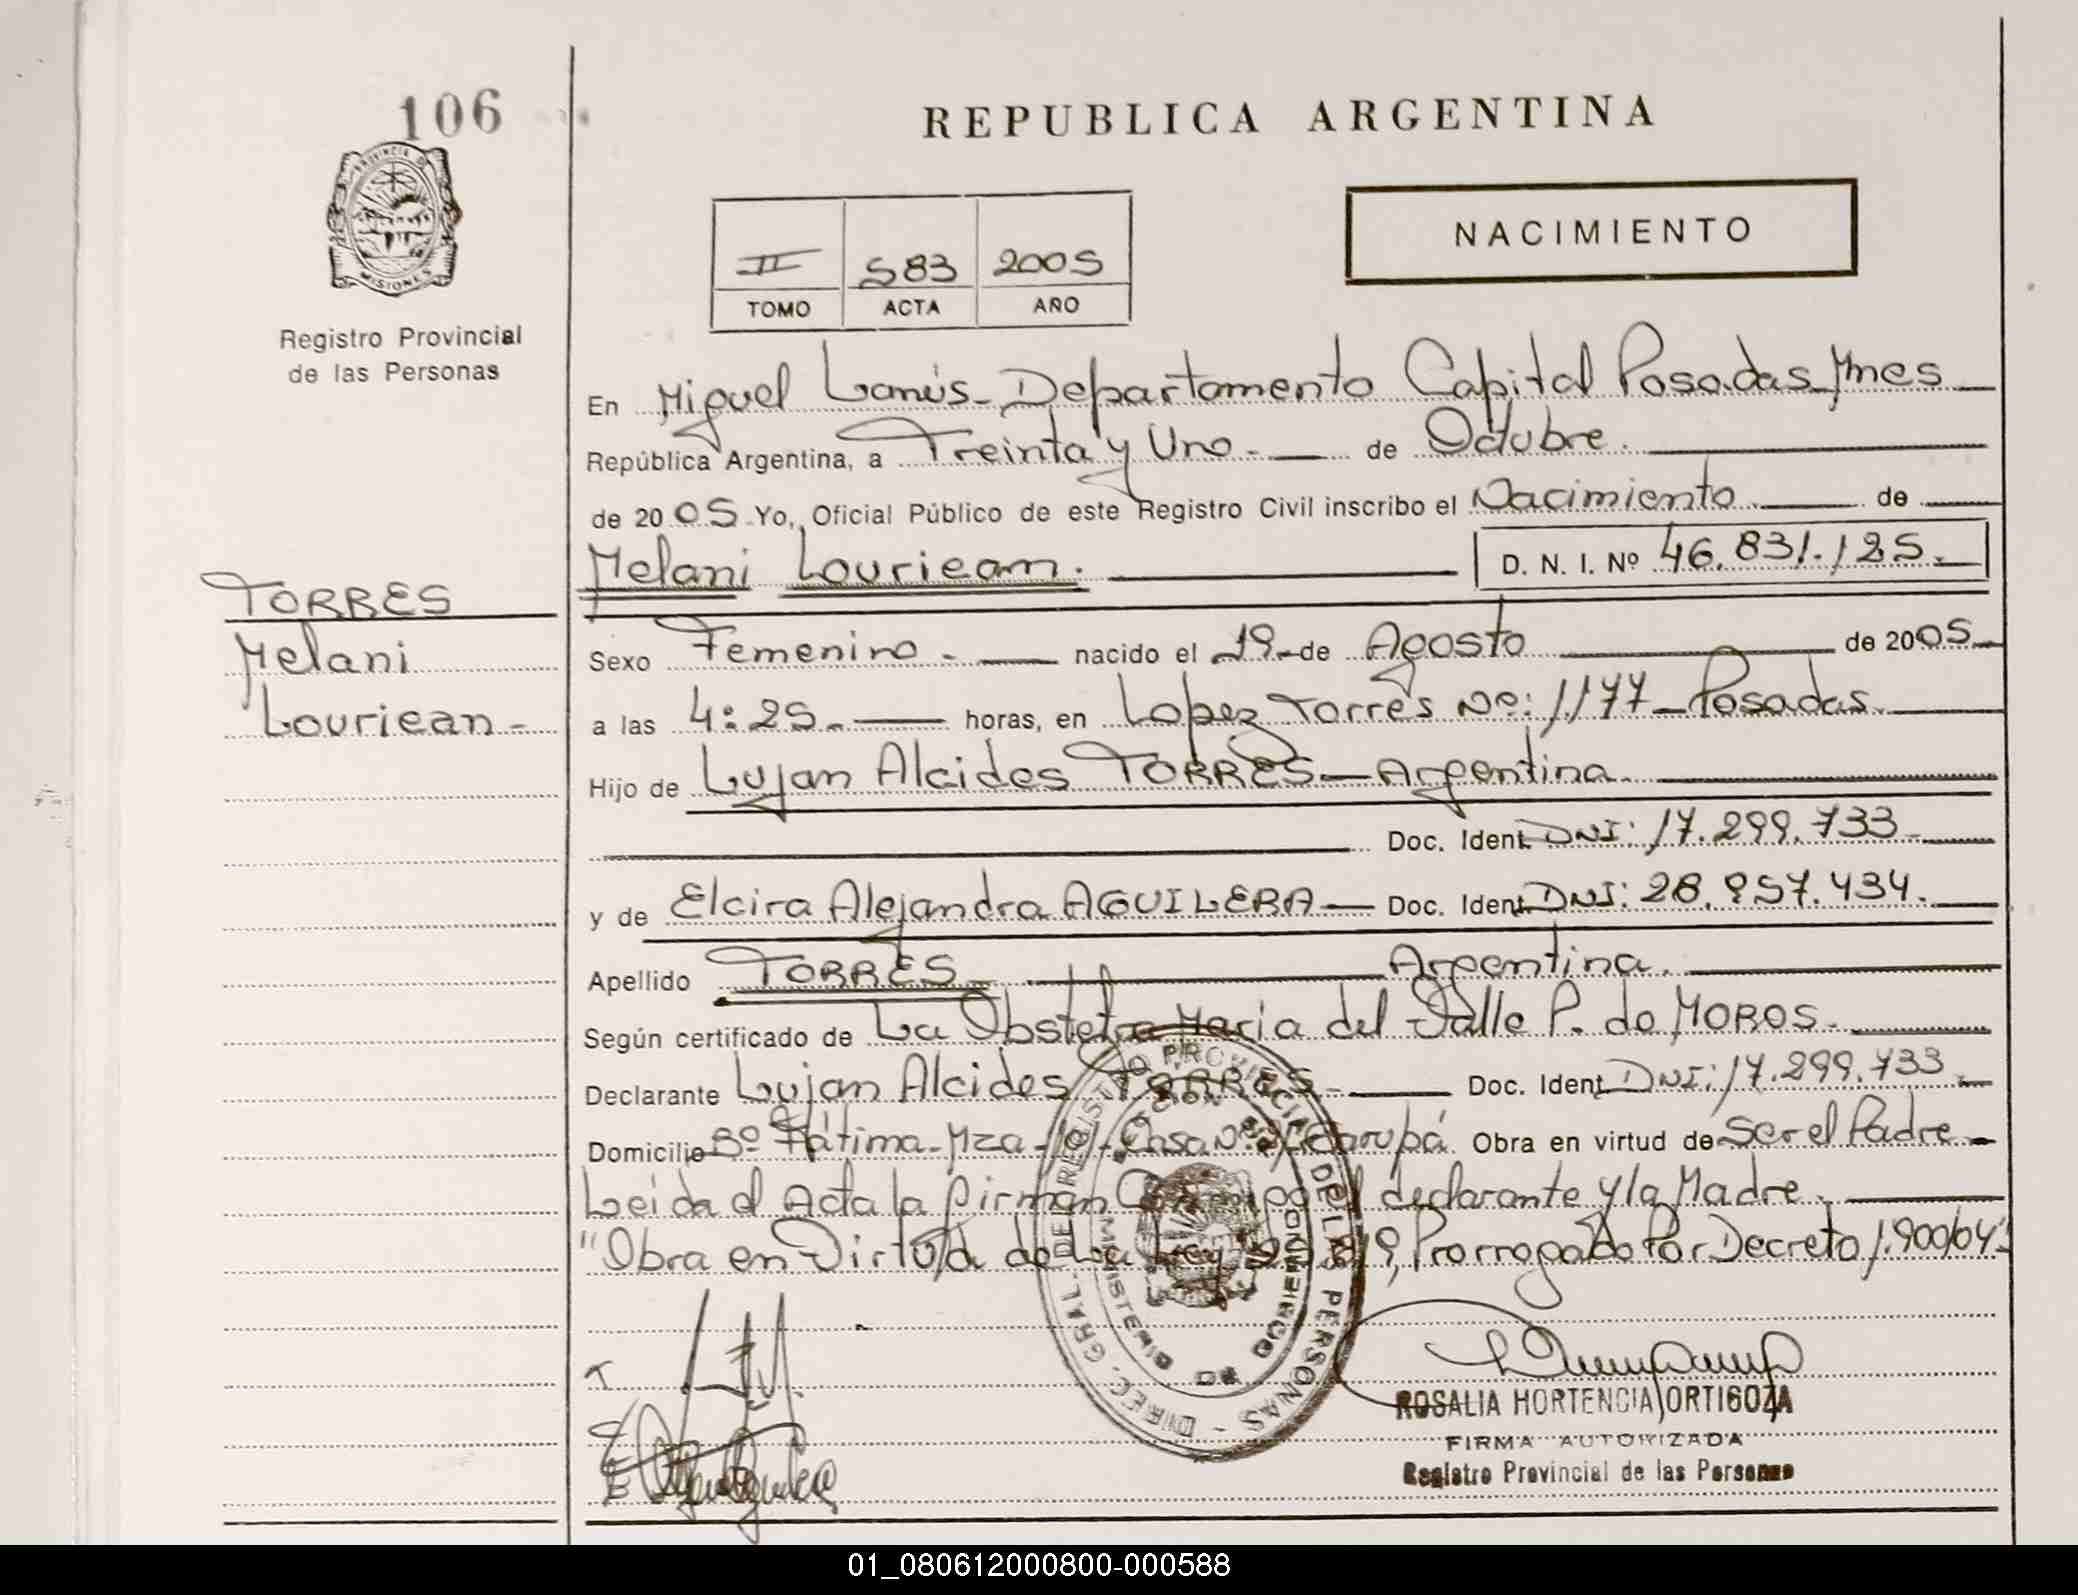 106
REPUBLICA ARGENTINA
PROVINCIA D
MISIONES
Registro Provincial
de las Personas
II 583 2005
TOMO ACTA AÑO
NACIMIENTO
En Miguel Lanús - Departamento Capital Posadas Mnes
República Argentina, a Treinta y Uno - de Octubre.
de 2005 Yo, Oficial Público de este Registro Civil inscribo el Nacimiento de
Melani Louriean. D. N. I. Nº 46.831.125.
TORRES
Melani
Louriean -
Sexo Femenino - nacido el 19 de Agosto de 2005
a las 4:25 horas, en Lopez Torres Nº: 1177 - Posadas.
Hijo de Lujan Alcides TORRES - Argentina.
Doc. Ident. DNI: 17.299.733
y de Elcira Alejandra AGUILERA - Doc. Ident. DNI: 28.957.434.
Apellido TORRES Argentina.
Según certificado de La Obstetra Maria del Valle P. de MOROS.
Declarante Lujan Alcides TORRES Doc. Ident. DNI: 17.299.733
Domicilio Bº Fátima - Mza - Casa Nº Garupá Obra en virtud de Ser el Padre
Leida el Acta la firman el declarante y la Madre.
"Obra en Virtud de La Ley Prorrogado Por Decreto 1.900/04"
DIREC. GRAL. DE REGISTRO PROVINCIAL DE LAS PERSONAS
MINISTERIO DE GOBIERNO
ROSALIA HORTENCIA ORTIGOZA
FIRMA AUTORIZADA
Registro Provincial de las Personas
01_080612000800-000588